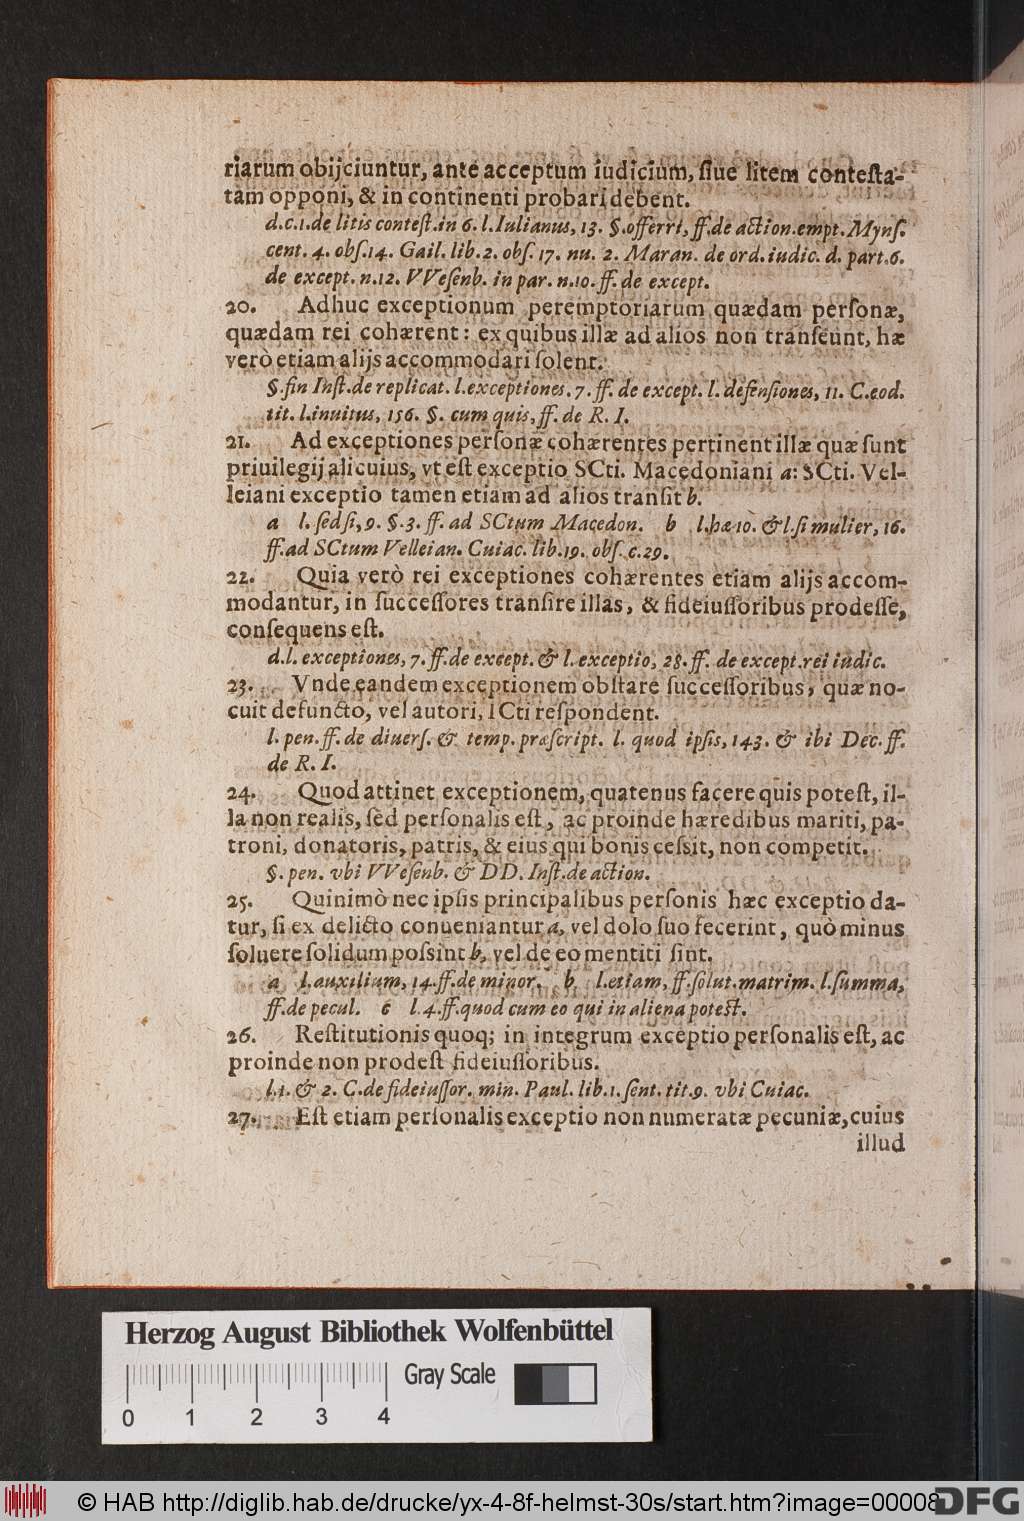 riarum obijciuntur, ante acceptum iudicium, ſiue litem conteſta-
tam opponi, & in continenti probari debent.
d.c.1.de litis conteſt.in 6. l.Iulianus, 13. §.offerri, ff.de action.empt. Mynſ.
cent. 4. obſ.14. Gail. lib.2. obſ. 17. nu. 2. Maran. de ord. iudic. d. part.6.
de except. n.12. VVeſenb. in par. n.10. ff. de except.
20. Adhuc exceptionum peremptoriarum quædam perſonæ,
quædam rei cohærent: ex quibus illæ ad alios non tranſeunt, hæ
verò etiam alijs accommodari ſolent.
§.fin Inſt.de replicat. l.exceptiones. 7. ff. de except. l. defenſiones, 11. C.eod.
tit. l.inuitus, 156. §. cum quis, ff. de R. I.
21. Ad exceptiones perſonæ cohærentes pertinent illæ quæ ſunt
priuilegij alicuius, vt eſt exceptio SCti. Macedoniani a: SCti. Vel-
leiani exceptio tamen etiam ad alios tranſit b.
a l. ſed ſi, 9. §.3. ff. ad SCtum Macedon. b l.hæ 10. & l.ſi mulier, 16.
ff.ad SCtum Velleian. Cuiac. lib.19. obſ. c.29.
22. Quia verò rei exceptiones cohærentes etiam alijs accom-
modantur, in ſucceſſores tranſire illas, & fideiuſſoribus prodeſſe,
conſequens eſt.
d.l. exceptiones, 7. ff.de except. & l. exceptio, 28. ff. de except.rei iudic.
23. Vnde eandem exceptionem obſtare ſucceſſoribus, quæ no-
cuit defuncto, vel autori, ICti reſpondent.
l. pen. ff. de diuerſ. & temp. præſcript. l. quod ipſis, 143. & ibi Dec. ff.
de R. I.
24. Quod attinet exceptionem, quatenus facere quis poteſt, il-
la non realis, ſed perſonalis eſt, ac proinde hæredibus mariti, pa-
troni, donatoris, patris, & eius qui bonis ceſsit, non competit.
§. pen. vbi VVeſenb. & DD. Inſt. de action.
25. Quinimò nec ipſis principalibus perſonis hæc exceptio da-
tur, ſi ex delicto conueniantur a, vel dolo ſuo fecerint, quò minus
ſoluere ſolidum poſsint b, vel de eo mentiti ſint.
a l.auxilium, 14. ff.de minor. b l.etiam, ff.ſolut.matrim. l.ſumma,
ff.de pecul. 6 l.4.ff.quod cum eo qui in aliena poteſt.
26. Reſtitutionis quoq; in integrum exceptio perſonalis eſt, ac
proinde non prodeſt fideiuſſoribus.
l.1. & 2. C.de fideiuſſor. min. Paul. lib.1. ſent. tit.9. vbi Cuiac.
27. Eſt etiam perſonalis exceptio non numeratæ pecuniæ, cuius
illud
Herzog August Bibliothek Wolfenbüttel
Gray Scale
0 1 2 3 4
© HAB http://diglib.hab.de/drucke/yx-4-8f-helmst-30s/start.htm?image=00008
DFG